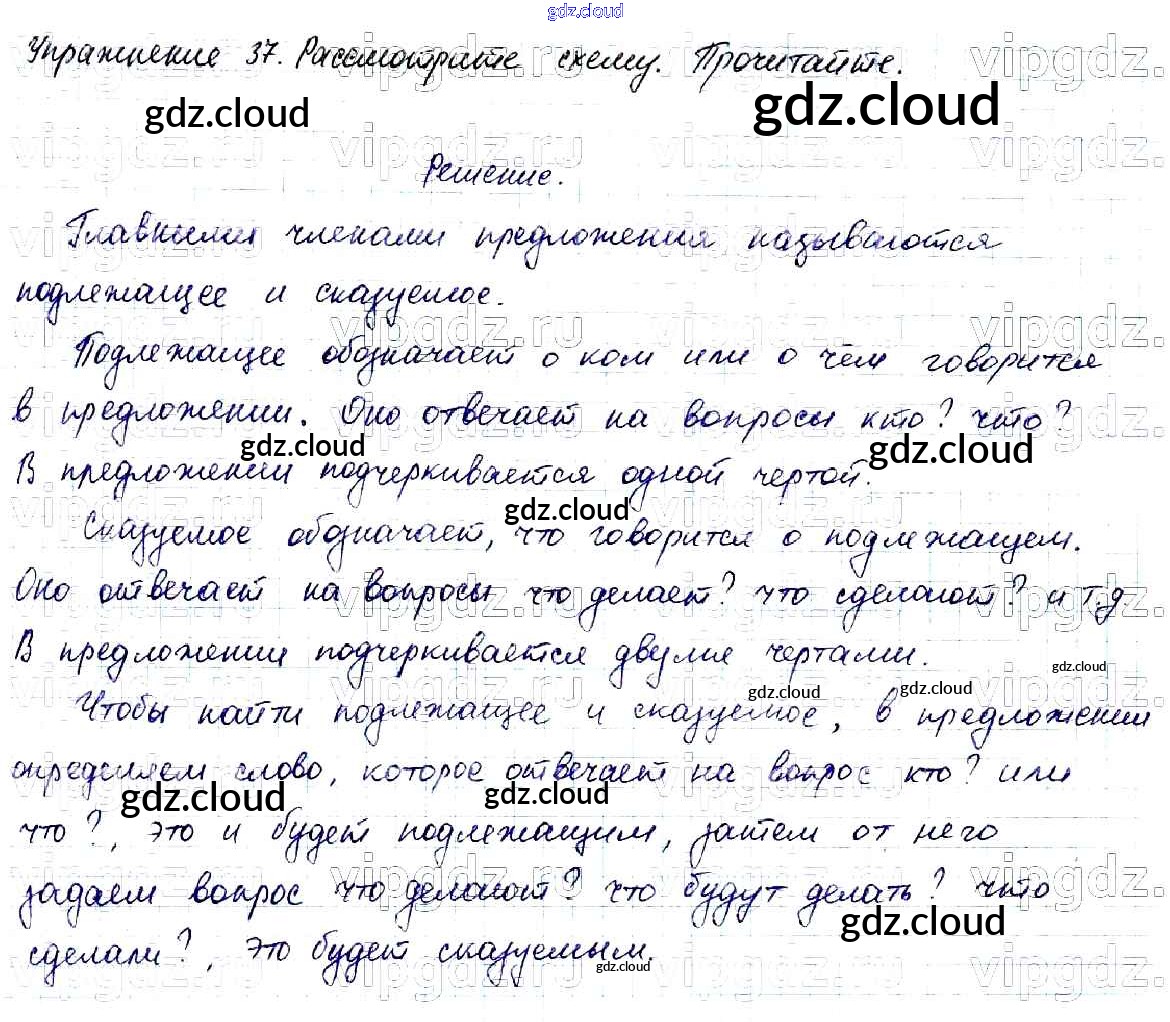 gdz.cloud
Упражнение 37. Рассмотрите схему. Прочитайте.
gdz.cloud gdz.cloud
vipgdz.ru
Решение.
Главными членами предложения называются
подлежащее и сказуемое.
Подлежащее обозначает о ком или о чём говорится
в предложении. Оно отвечает на вопросы кто? что?
gdz.cloud gdz.cloud
В предложении подчеркивается одной чертой.
gdz.cloud
Сказуемое обозначает, что говорится о подлежащем.
Оно отвечает на вопросы что делает? что сделают? и т.д
В предложении подчеркивается двумя чертами.
gdz.cloud gdz.cloud gdz.cloud
Чтобы найти подлежащее и сказуемое, в предложении
определяем слово, которое отвечает на вопрос кто? или
gdz.cloud gdz.cloud
что?, это и будет подлежащим, затем от него
задаем вопрос что делают? что будут делать? что
gdz.cloud
сделали?, это будет сказуемым.
gdz.cloud